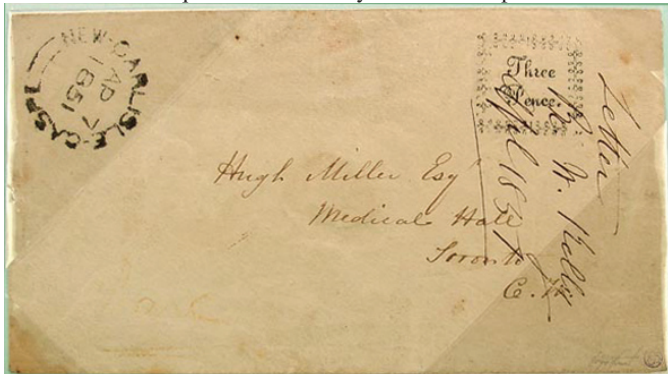 NEW-CARLISLE-GASPÉ
AP 7
1851
Three
Pence.
Letter
April 1851
Hugh Miller Esq
Medical Hall
Toronto
C.W.